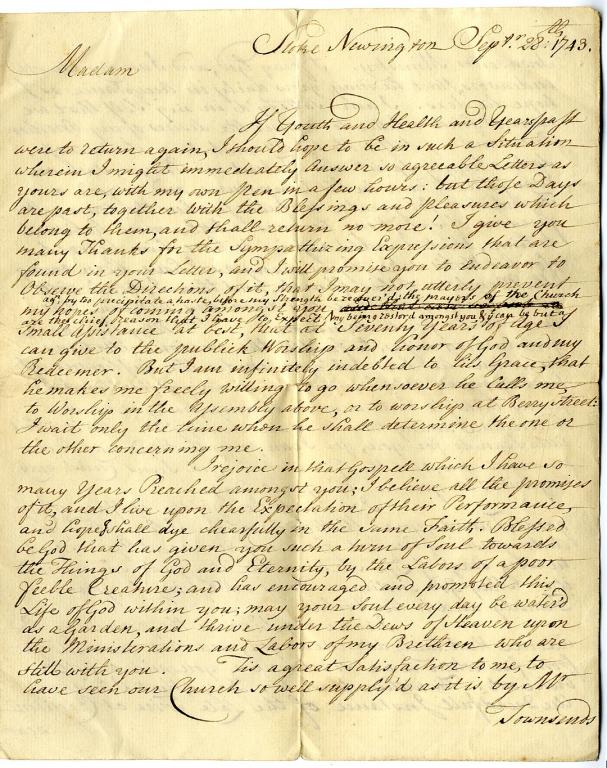 Stoke Newington Septr. 28th: 1743.
Madam
If Youth and Health and Years past
were to return again, I should hope to be in such a Situation
wherein I might immediately Answer so agreeable Letters as
yours are, with my own pen in a few hours: but those Days
are past, together with the Blessings and pleasures which
belong to them, and shall return no more! I give you
many Thanks for the Sympathizing Expressions that are
found in your Letter, and I will promise you to Endeavor to
Observe the Directions of it, that I may not utterly prevent
as by too precipitate a haste, before my Strength be recover'd: the prayers of the Church
my hopes of coming amongst you
are the chief reason that I have to Expect my being restor'd amongst you & it can be but a
Small assistance at best, that at Seventy Years of Age I
can give to the publick Worship and honor of God and my
Redeemer. But I am infinitely indebted to his Grace, that
he makes me freely willing to go whensoever he Calls me
to Worship in the Assembly above, or to worship at Berry Street:
I wait only the time when he shall determine the one or
the other concerning me.
I rejoice in that Gospell which I have so
many Years Preached amongst you; I believe all the promises
of it, and I live upon the Expectation of their Performance,
and hope I shall dye chearfully in the same Faith. Blessed
be God that has given you such a turn of Soul towards
the Things of God and Eternity, by the Labors of a poor
feeble Creature; and has encouraged and promoted this
Life of God within you; may your Soul every day be water'd
as a Garden, and thrive under the Dews of Heaven upon
the Ministerations and Labors of my Brethren who are
still with you. Tis a great Satisfaction to me, to
have seen our Church so well supply'd as it is by Mr
Townsends